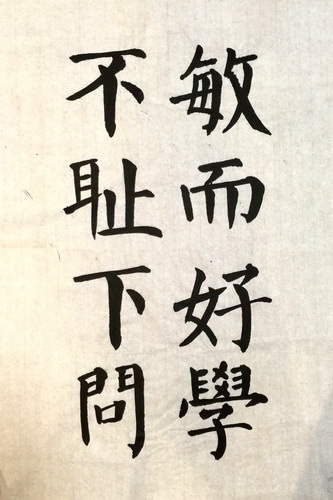 敏而好學
不耻下問